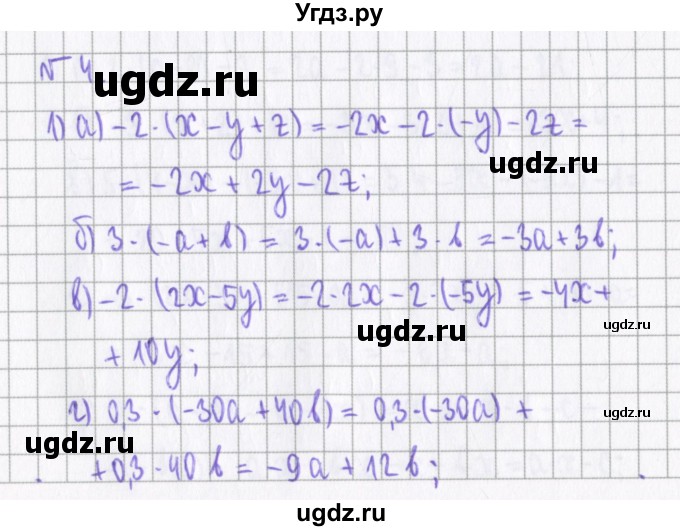 Угдз.ру
№ 4
ugdz.ru
1) а) -2·(x - y + z) = -2x - 2·(-y) - 2z =
ugdz.ru
= -2x + 2y - 2z;
б) 3·(-a + b) = 3·(-a) + 3·b = -3a + 3b;
в) -2·(2x - 5y) = -2·2x - 2·(-5y) = -4x +
ugdz.ru
ugdz.ru
+ 10y;
г) 0,3·(-30a + 40b) = 0,3·(-30a) +
ugdz.ru
+ 0,3·40b = -9a + 12b;
ugdz.ru